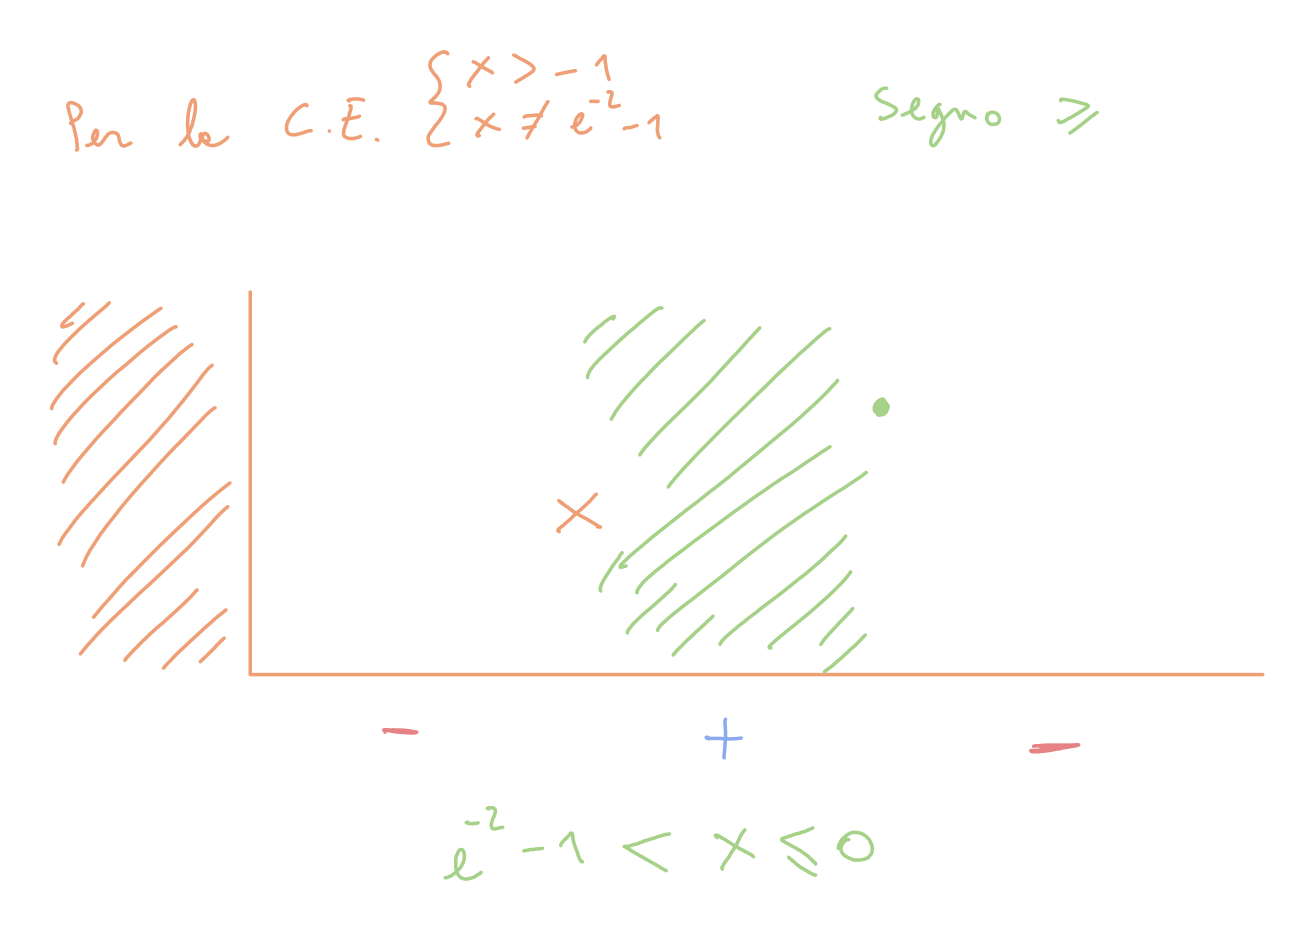 Per la C.E. { x > -1
x ≠ e⁻² - 1
Segno ≥
- + -
e⁻² - 1 < x ≤ 0